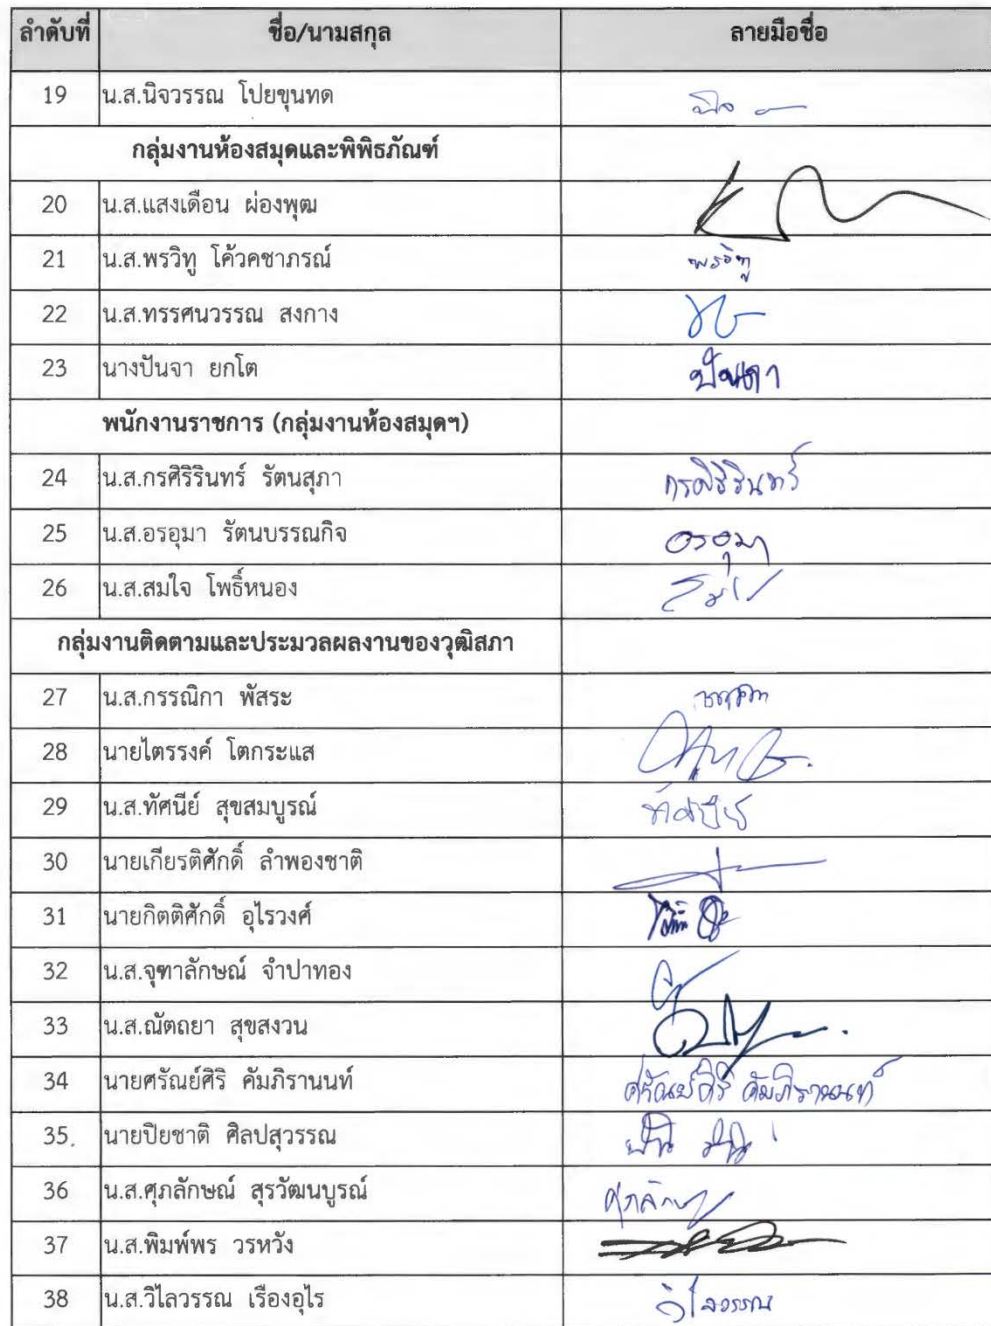 ลำดับที่ ชื่อ/นามสกุล ลายมือชื่อ
19 น.ส.นิจวรรณ โปยขุนทด
กลุ่มงานห้องสมุดและพิพิธภัณฑ์
20 น.ส.แสงเดือน ผ่องพุฒ
21 น.ส.พรวิทู โค้วคชาภรณ์ พรวิทู
22 น.ส.ทรรศนวรรณ สงกาง
23 นางปันจา ยกโต
พนักงานราชการ (กลุ่มงานห้องสมุดฯ)
24 น.ส.กรศิริรินทร์ รัตนสุภา กรศิริรินทร์
25 น.ส.อรอุมา รัตนบรรณกิจ อรอุมา
26 น.ส.สมใจ โพธิ์หนอง
กลุ่มงานติดตามและประมวลผลงานของวุฒิสภา
27 น.ส.กรรณิกา พัสระ
28 นายไตรรงค์ โตกระแส
29 น.ส.ทัศนีย์ สุขสมบูรณ์ ทัศนีย์
30 นายเกียรติศักดิ์ ลำพองชาติ
31 นายกิตติศักดิ์ อุไรวงศ์
32 น.ส.จุฑาลักษณ์ จำปาทอง
33 น.ส.ณัตถยา สุขสงวน
34 นายศรัณย์ศิริ คัมภิรานนท์ ศรัณย์ศิริ คัมภิรานนท์
35. นายปิยชาติ ศิลปสุวรรณ
36 น.ส.ศุภลักษณ์ สุรวัฒนบูรณ์ ศุภลักษณ์
37 น.ส.พิมพ์พร วรหวัง
38 น.ส.วิไลวรรณ เรืองอุไร วิไลวรรณ